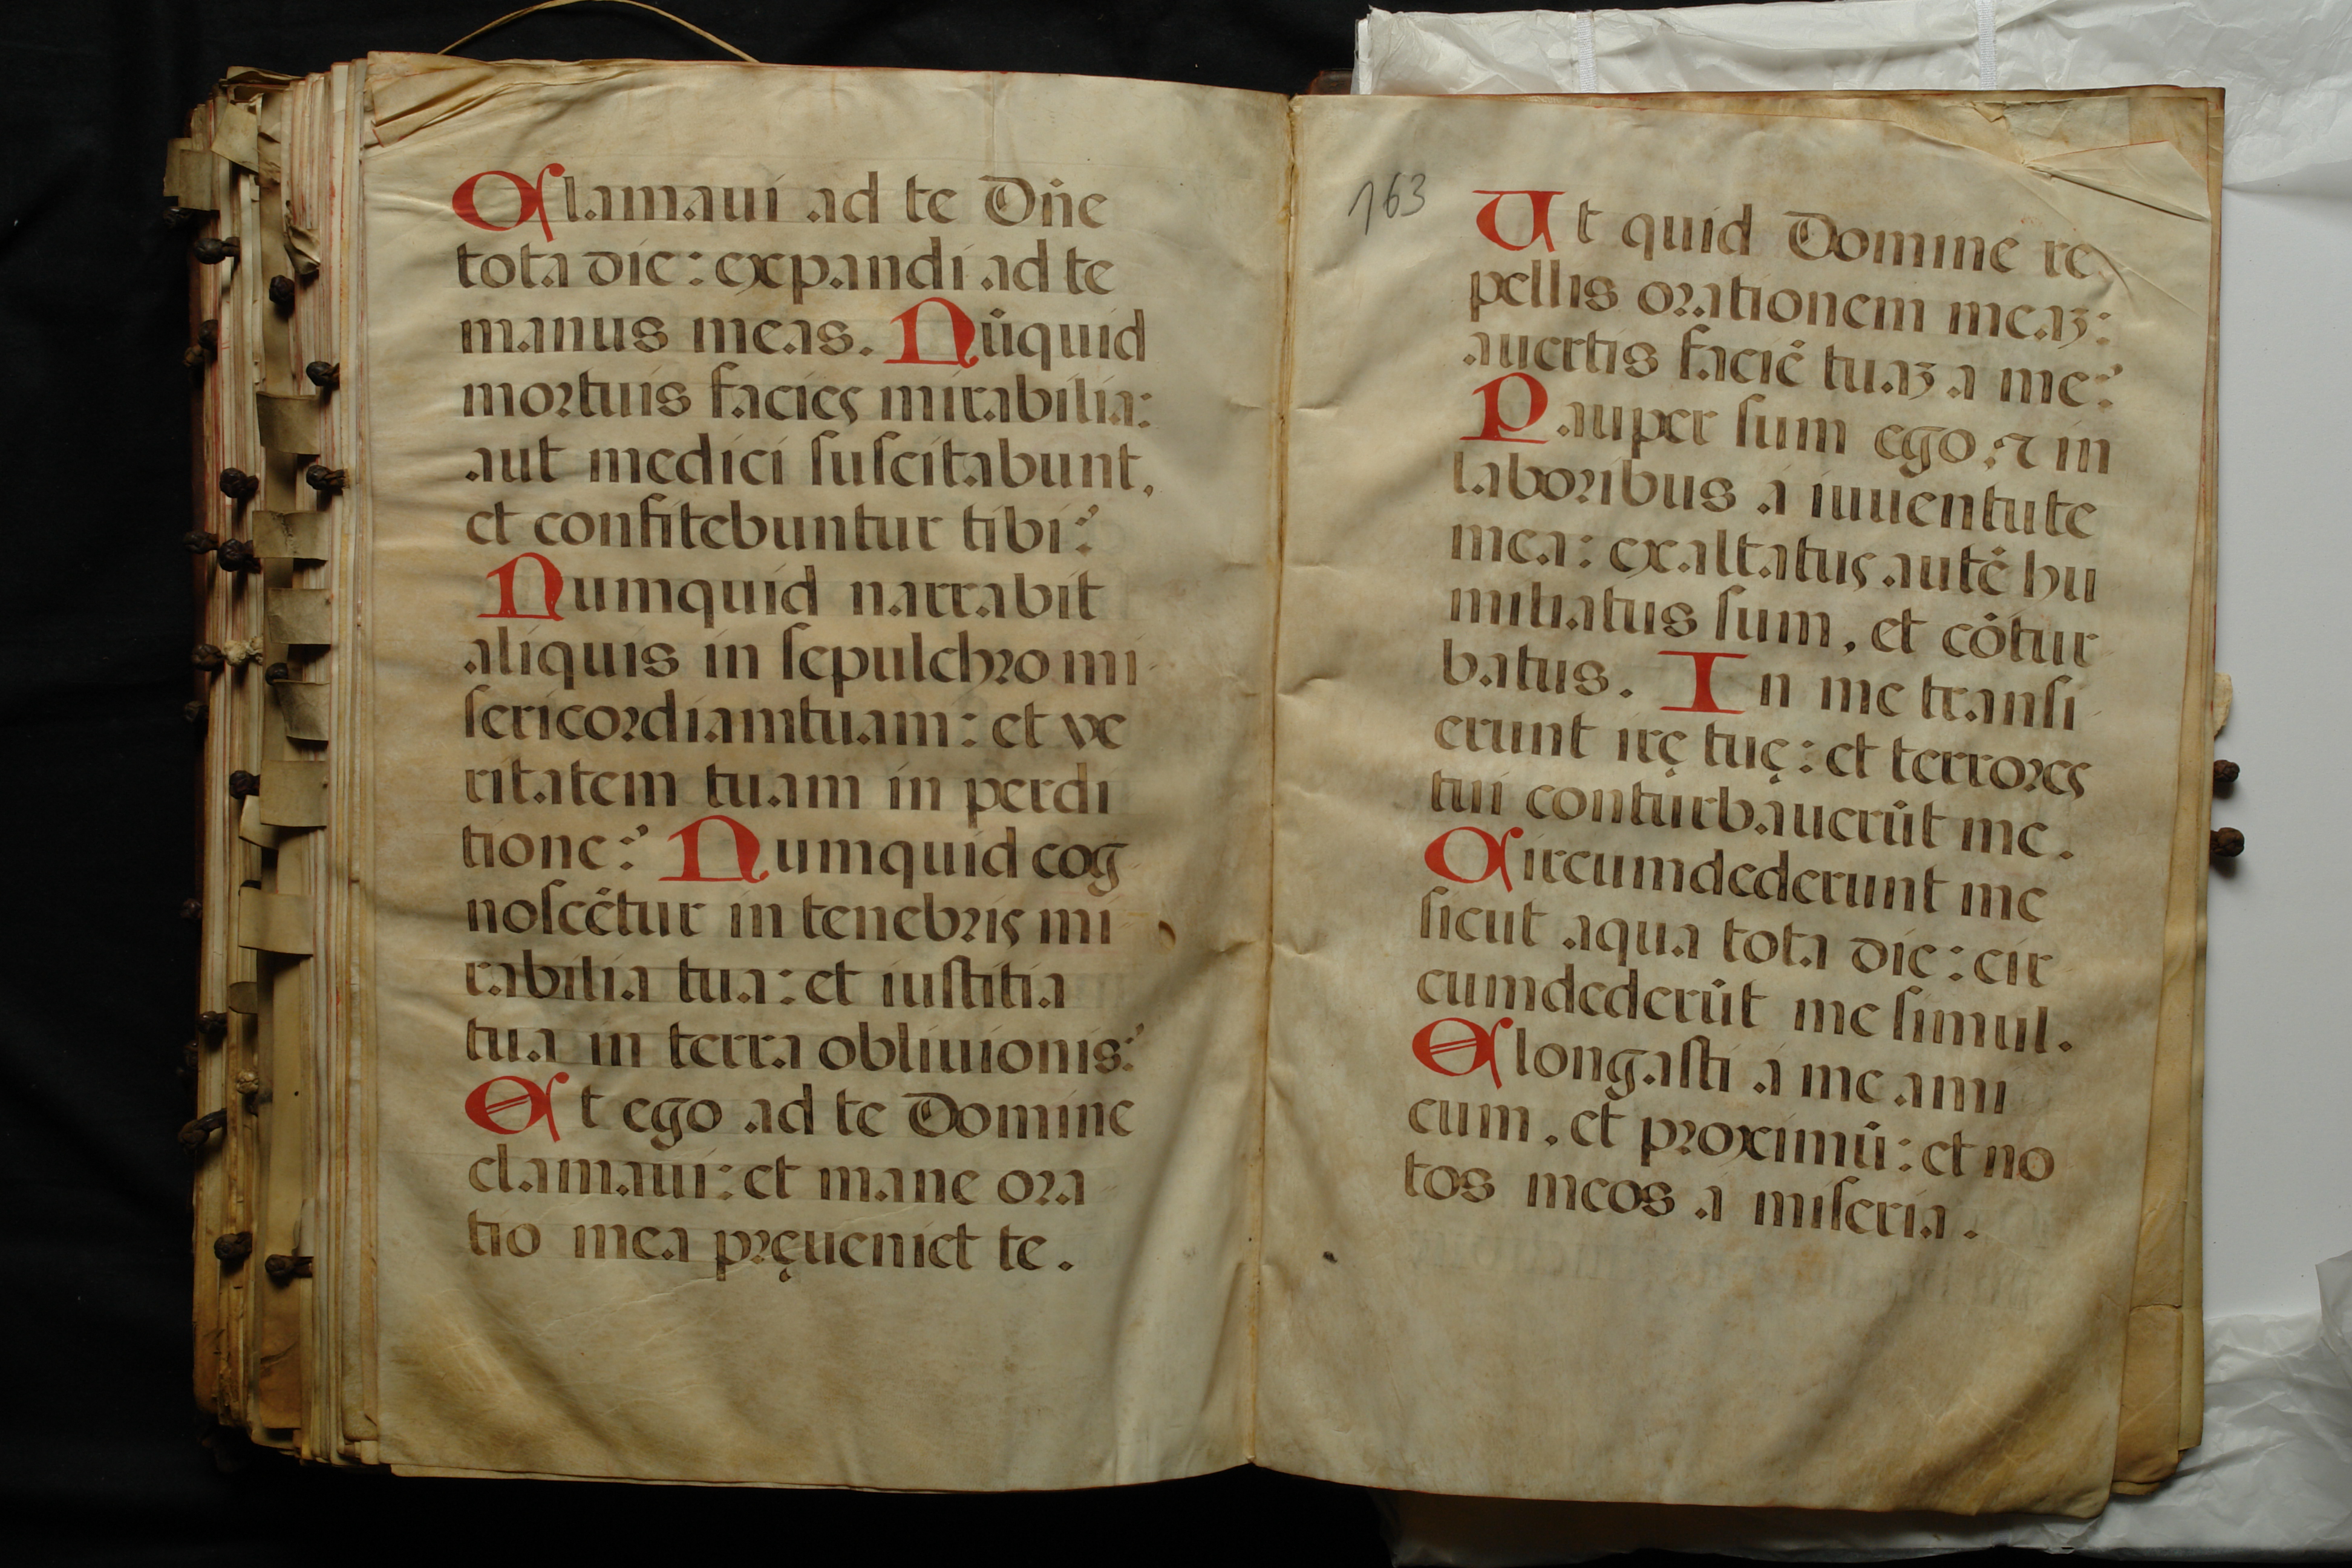 Clamaui ad te Dñe
tota die: expandi ad te
manus meas. Nũquid
mortuis facies mirabilia:
aut medici suscitabunt,
et confitebuntur tibi?
Numquid narrabit
aliquis in sepulchro mi
sericordiam tuam: et ve
ritatem tuam in perdi
tione? Numquid cog
noscẽtur in tenebris mi
rabilia tua: et iustitia
tua in terra obliuionis?
Et ego ad te Domine
clamaui: et mane ora
tio mea pręueniet te.
163
Ut quid Domine re
pellis orationem meaʒ:
auertis faciẽ tuaʒ a me?
Pauper sum ego, ⁊ in
laboribus a iuuentute
mea: exaltatus autẽ hu
miliatus sum, et cõtur
batus. In me transi
erunt irę tuę: et terrores
tui conturbauerũt me.
Circumdederunt me
sicut aqua tota die: cir
cumdederũt me simul.
Elongasti a me ami
cum, et proximũ: et no
tos meos a miseria.